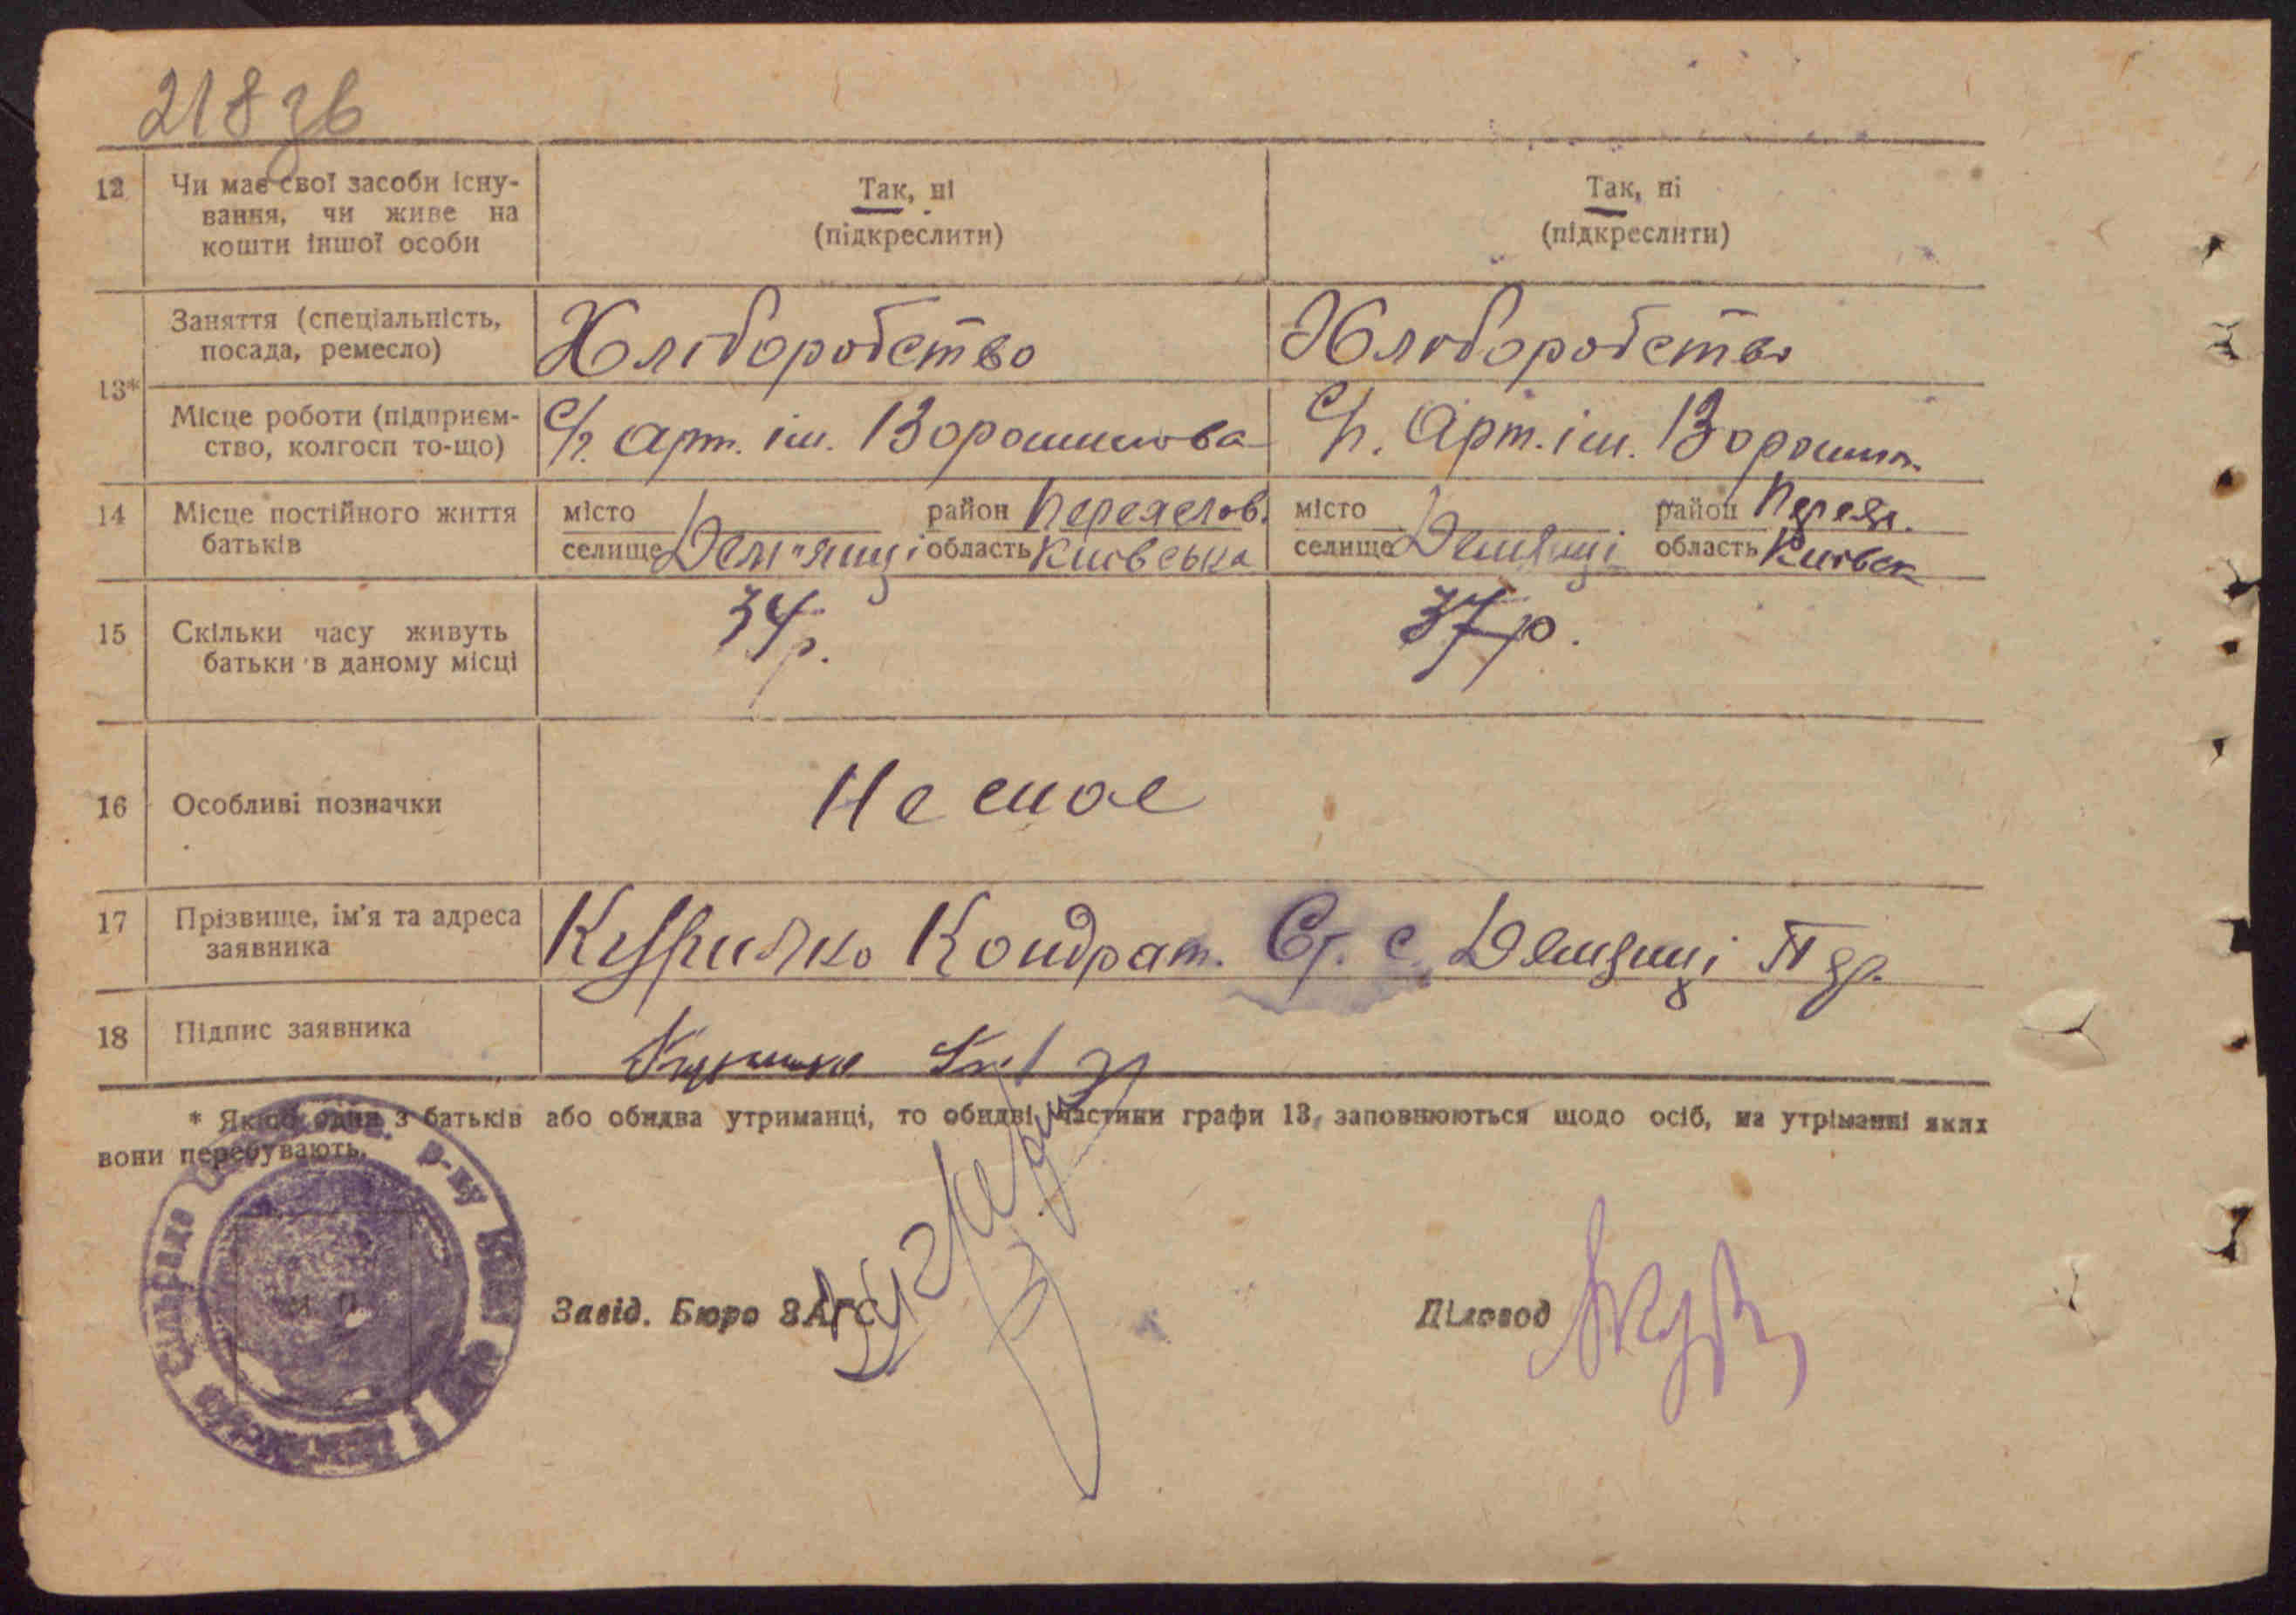 218зв
12 Чи має свої засоби існу-
вання, чи живе на
кошти іншої особи
Так, ні
(підкреслити)
Так, ні
(підкреслити)
13*
Заняття (спеціальність,
посада, ремесло)
Хліборобство
Хлiборобство
Місце роботи (підприєм-
ство, колгосп то-що)
арт. ім. Ворошилова
Арт. ім. Ворошил.
14 Місце постійного життя
батьків
місто район Переяслов.
селище Дем"янці область Київська
місто район Переяс.
селище Демянці область Київськ
15 Скільки часу живуть
батьки в даному місці
34 р.
37 р.
16 Особливі позначки
Не має
17 Прізвище, ім'я та адреса
заявника
Кондрат. с. Демянці
18 Підпис заявника
* Якщо один з батьків або обидва утриманці, то обидві частини графи 13, заповнюються щодо осіб, на утріманні яких
вони перебувають.
р-ну
сільрада
М П
Завід. Бюро ЗАГС
Діловод